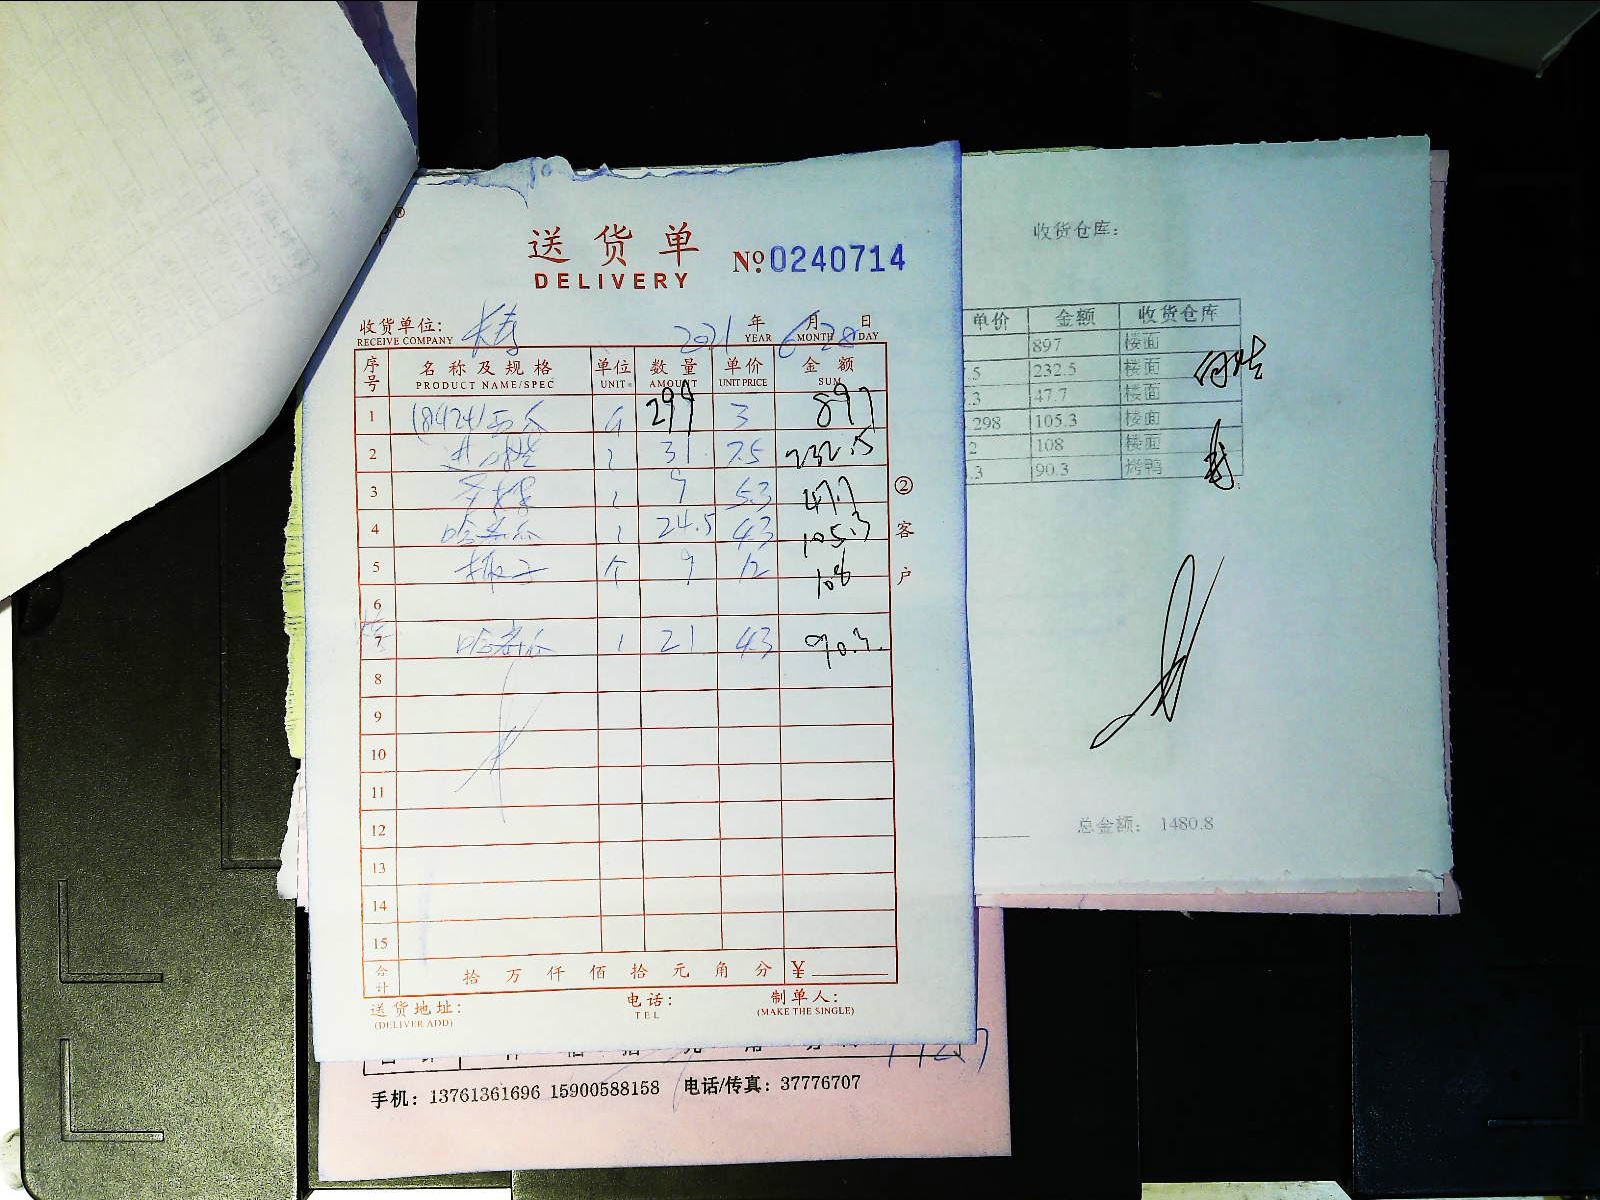 送货单
DELIVERY
№ 0240714
收货单位: 长寿 2021 年 6 月 28 日
RECEIVE COMPANY YEAR MONTH DAY
序号 名称及规格 单位 数量 单价 金额
PRODUCT NAME/SPEC UNIT AMOUNT UNIT PRICE SUM
1 (8424)西瓜 斤 299 3 897
2 进口橙 31 7.5 232.5
3 9 5.3 47.7
4 哈密瓜 24.5 4.3 105.3
5 椰子 个 9 12 108
6
7 哈密瓜 21 4.3 90.3
8
9
10
11
12
13
14
15
合计 拾 万 仟 佰 拾 元 角 分 ¥
送货地址: 电话: 制单人:
(DELIVER ADD) TEL (MAKE THE SINGLE)
②客户
手机: 13761361696 15900588158 电话/传真: 37776707
收货仓库:
单价 金额 收货仓库
897 楼面
.5 232.5 楼面
.3 47.7 楼面
.298 105.3 楼面
2 108 楼面
.3 90.3 烤鸭
总金额: 1480.8